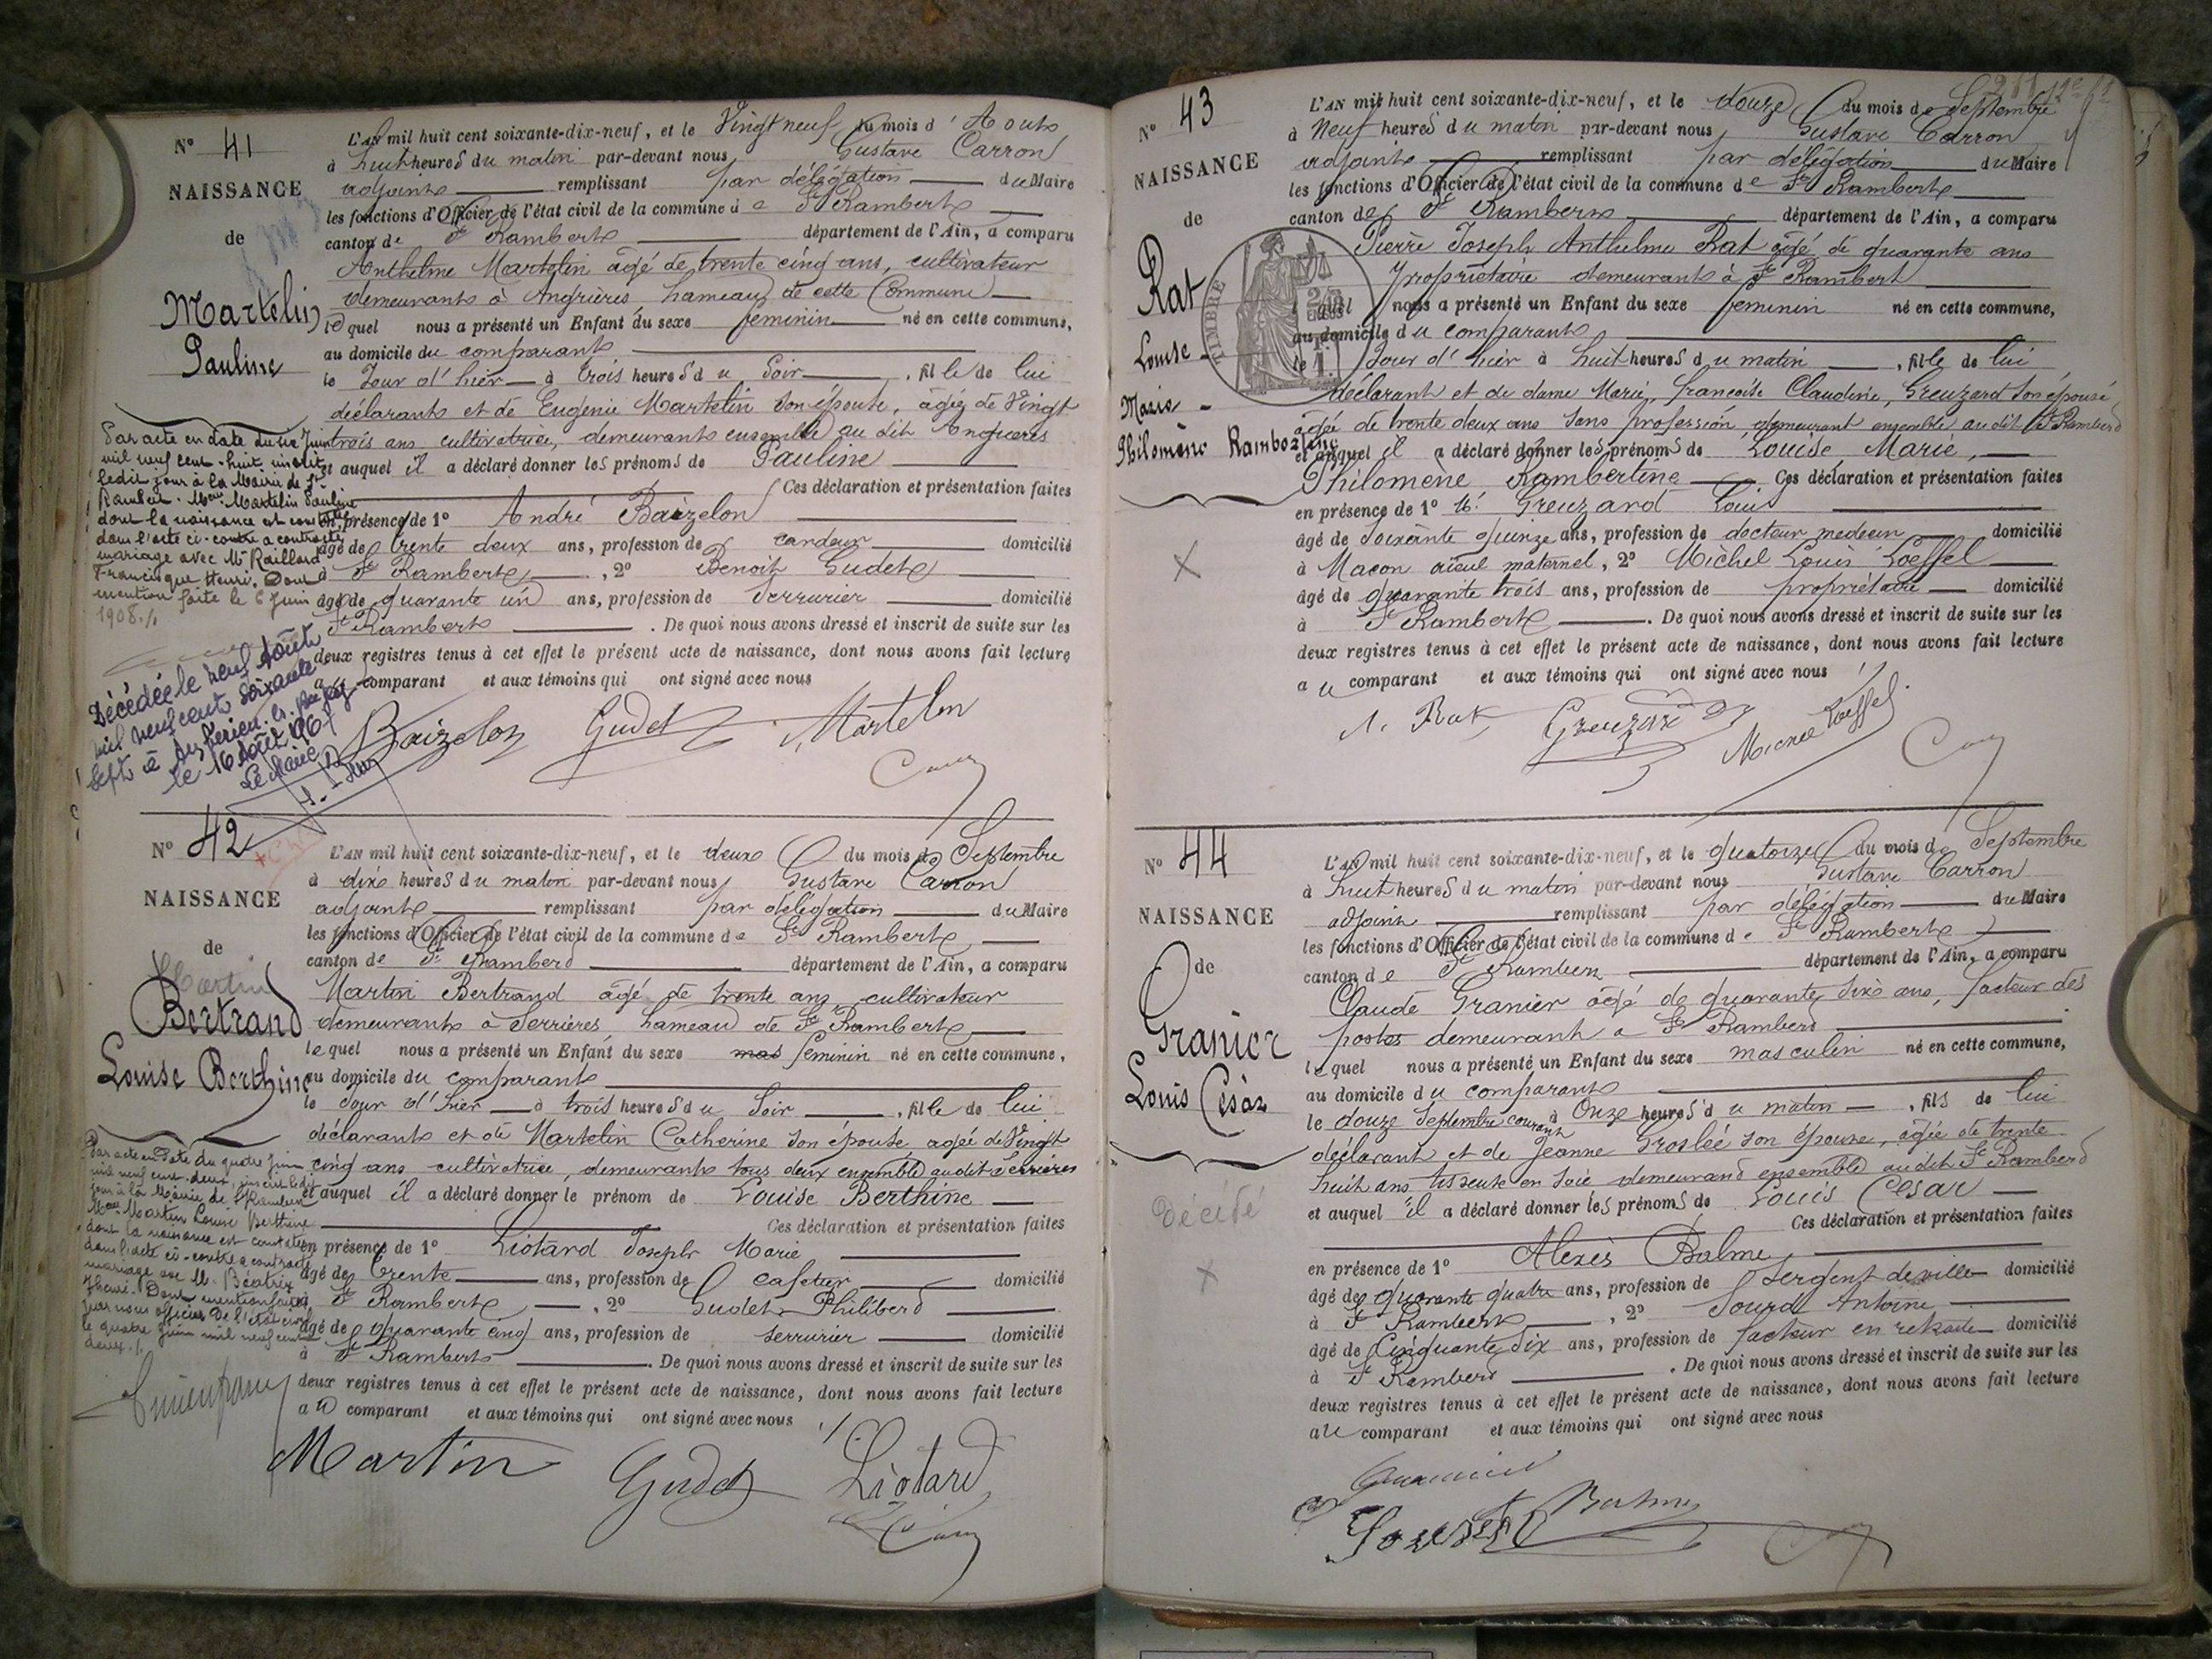 N° 41
NAISSANCE
de
Martelin
Pauline
Par acte en date du six Juin
mil neuf cent huit, inscrit
ledit jour à la Mairie de St
Rambert. Melle Martelin Pauline
dont la naissance est constatée
dans l'acte ci-contre a contracté
mariage avec Mr Raillard
Francisque Henri. Dont
mention faite le 6 Juin
1908./.
Décédée le neuf Août
mil neuf cent soixante
sept à
le 16 Août 1967
Le Maire
L'AN mil huit cent soixante-dix-neuf, et le Vingt neuf du mois d'Aout
à huit heures du matin par-devant nous Gustave Carron
adjoint remplissant par délégation du Maire
les fonctions d'Officier de l'état civil de la commune de St Rambert
canton de St Rambert département de l'Ain, a comparu
Anthelme Martelin âgé de trente cinq ans, cultivateur
demeurant à Angrières hameau de cette Commune
lequel nous a présenté un Enfant du sexe feminin né en cette commune,
au domicile du comparant
le Jour d'hier à trois heures du Soir, fille de lui
déclarant et de Eugénie Martelin son épouse, âgée de Vingt
trois ans cultivatrice, demeurant ensemble au dit Angrières
et auquel il a déclaré donner les prénoms de Pauline
Ces déclaration et présentation faites
en présence de 1° André Baizelon
âgé de trente deux ans, profession de cardeur domicilié
à St Rambert, 2° Benoit Gudet
âgé de quarante un ans, profession de Serrurier domicilié
St Rambert. De quoi nous avons dressé et inscrit de suite sur les
deux registres tenus à cet effet le présent acte de naissance, dont nous avons fait lecture
au comparant et aux témoins qui ont signé avec nous
Baizelon Gudet Martelin
N° 42
NAISSANCE
de
Martin
Bertrand
Louise Berthine
Par acte en date du quatre Juin
mil neuf cent deux, inscrit ledit
jour à la Mairie de St Rambert
Melle Martin Louise Berthine
dont la naissance est constatée
dans l'acte ci-contre a contracté
mariage avec M. Béatrix
Henri. Dont mention faite
par nous officier de l'état civil
le quatre Juin mil neuf cent
deux./.
L'AN mil huit cent soixante-dix-neuf, et le deux du mois de Septembre
à dix heures du matin par-devant nous Gustave Carron
adjoint remplissant par délégation du Maire
les fonctions d'Officier de l'état civil de la commune de St Rambert
canton de St Rambert département de l'Ain, a comparu
Martin Bertrand âgé de trente ans cultivateur
demeurant à Serrières hameau de St Rambert
lequel nous a présenté un Enfant du sexe mas feminin né en cette commune,
au domicile du comparant
le Jour d'hier à trois heures du Soir, fille de lui
déclarant et de Martelin Catherine son épouse agée de Vingt
cinq ans cultivatrice, demeurant tous deux ensemble au dit Serrières
et auquel il a déclaré donner le prénom de Louise Berthine
Ces déclaration et présentation faites
en présence de 1° Liotard Joseph Marie
âgé de trente ans, profession de cafetier domicilié
à St Rambert, 2° Gudet Philibert
âgé de quarante cinq ans, profession de serrurier domicilié
à St Rambert. De quoi nous avons dressé et inscrit de suite sur les
deux registres tenus à cet effet le présent acte de naissance, dont nous avons fait lecture
au comparant et aux témoins qui ont signé avec nous ./.
Martin Gudet Liotard
N° 43
NAISSANCE
de
Rat
Louise
Marie
Philomène Rambertine
L'AN mil huit cent soixante-dix-neuf, et le douze du mois de Septembre
à Neuf heures du matin par-devant nous Gustave Carron
adjoint remplissant par délégation du Maire
les fonctions d'Officier de l'état civil de la commune de St Rambert
canton de St Rambert département de l'Ain, a comparu
Pierre Joseph Anthelme Rat âgé de quarante ans
propriétaire demeurant à St Rambert
TIMBRE
lequel nous a présenté un Enfant du sexe feminin né en cette commune,
au domicile du comparant
le Jour d'hier à huit heures du matin, fille de lui
déclarant et de dame Marie, françoise Claudine, Greuzard son épouse
agée de trente deux ans sans profession demeurant ensemble au dit St Rambert
et auquel il a déclaré donner les prénoms de Louise, Marie,
Philomène Rambertine Ces déclaration et présentation faites
en présence de 1° Mr. Greuzard Louis
âgé de soixante quinze ans, profession de docteur medecin domicilié
à Macon aieul maternel, 2° Michel Louis Loeffel
âgé de quarante trois ans, profession de propriétaire domicilié
à St Rambert. De quoi nous avons dressé et inscrit de suite sur les
deux registres tenus à cet effet le présent acte de naissance, dont nous avons fait lecture
au comparant et aux témoins qui ont signé avec nous
A. Rat Greuzard Michel Loeffel
N° 44
NAISSANCE
de
Granier
Louis Césàr
Décédé
L'AN mil huit cent soixante-dix-neuf, et le quatorze du mois de Septembre
à huit heures du matin par-devant nous Gustave Carron
adjoint remplissant par délégation du Maire
les fonctions d'Officier de l'état civil de la commune de St Rambert
canton de St Rambert département de l'Ain, a comparu
Claude Granier âgé de quarante six ans, facteur des
postes demeurant a St Rambert
lequel nous a présenté un Enfant du sexe masculin né en cette commune,
au domicile du comparant
le douze Septembre courant à Onze heures du matin, fils de lui
déclarant et de Jeanne Groslée son épouse, âgée de trente
huit ans tisseuse en soie demeurand ensemble au dit St Rambert
et auquel il a déclaré donner les prénoms de Louis Cesar
Ces déclaration et présentation faites
en présence de 1° Alexis Balme
âgé de quarante quatre ans, profession de Sergent de ville domicilié
à St Rambert, 2° Sourd Antoine
âgé de Cinquante Six ans, profession de facteur en retraite domicilié
à St Rambert. De quoi nous avons dressé et inscrit de suite sur les
deux registres tenus à cet effet le présent acte de naissance, dont nous avons fait lecture
au comparant et aux témoins qui ont signé avec nous